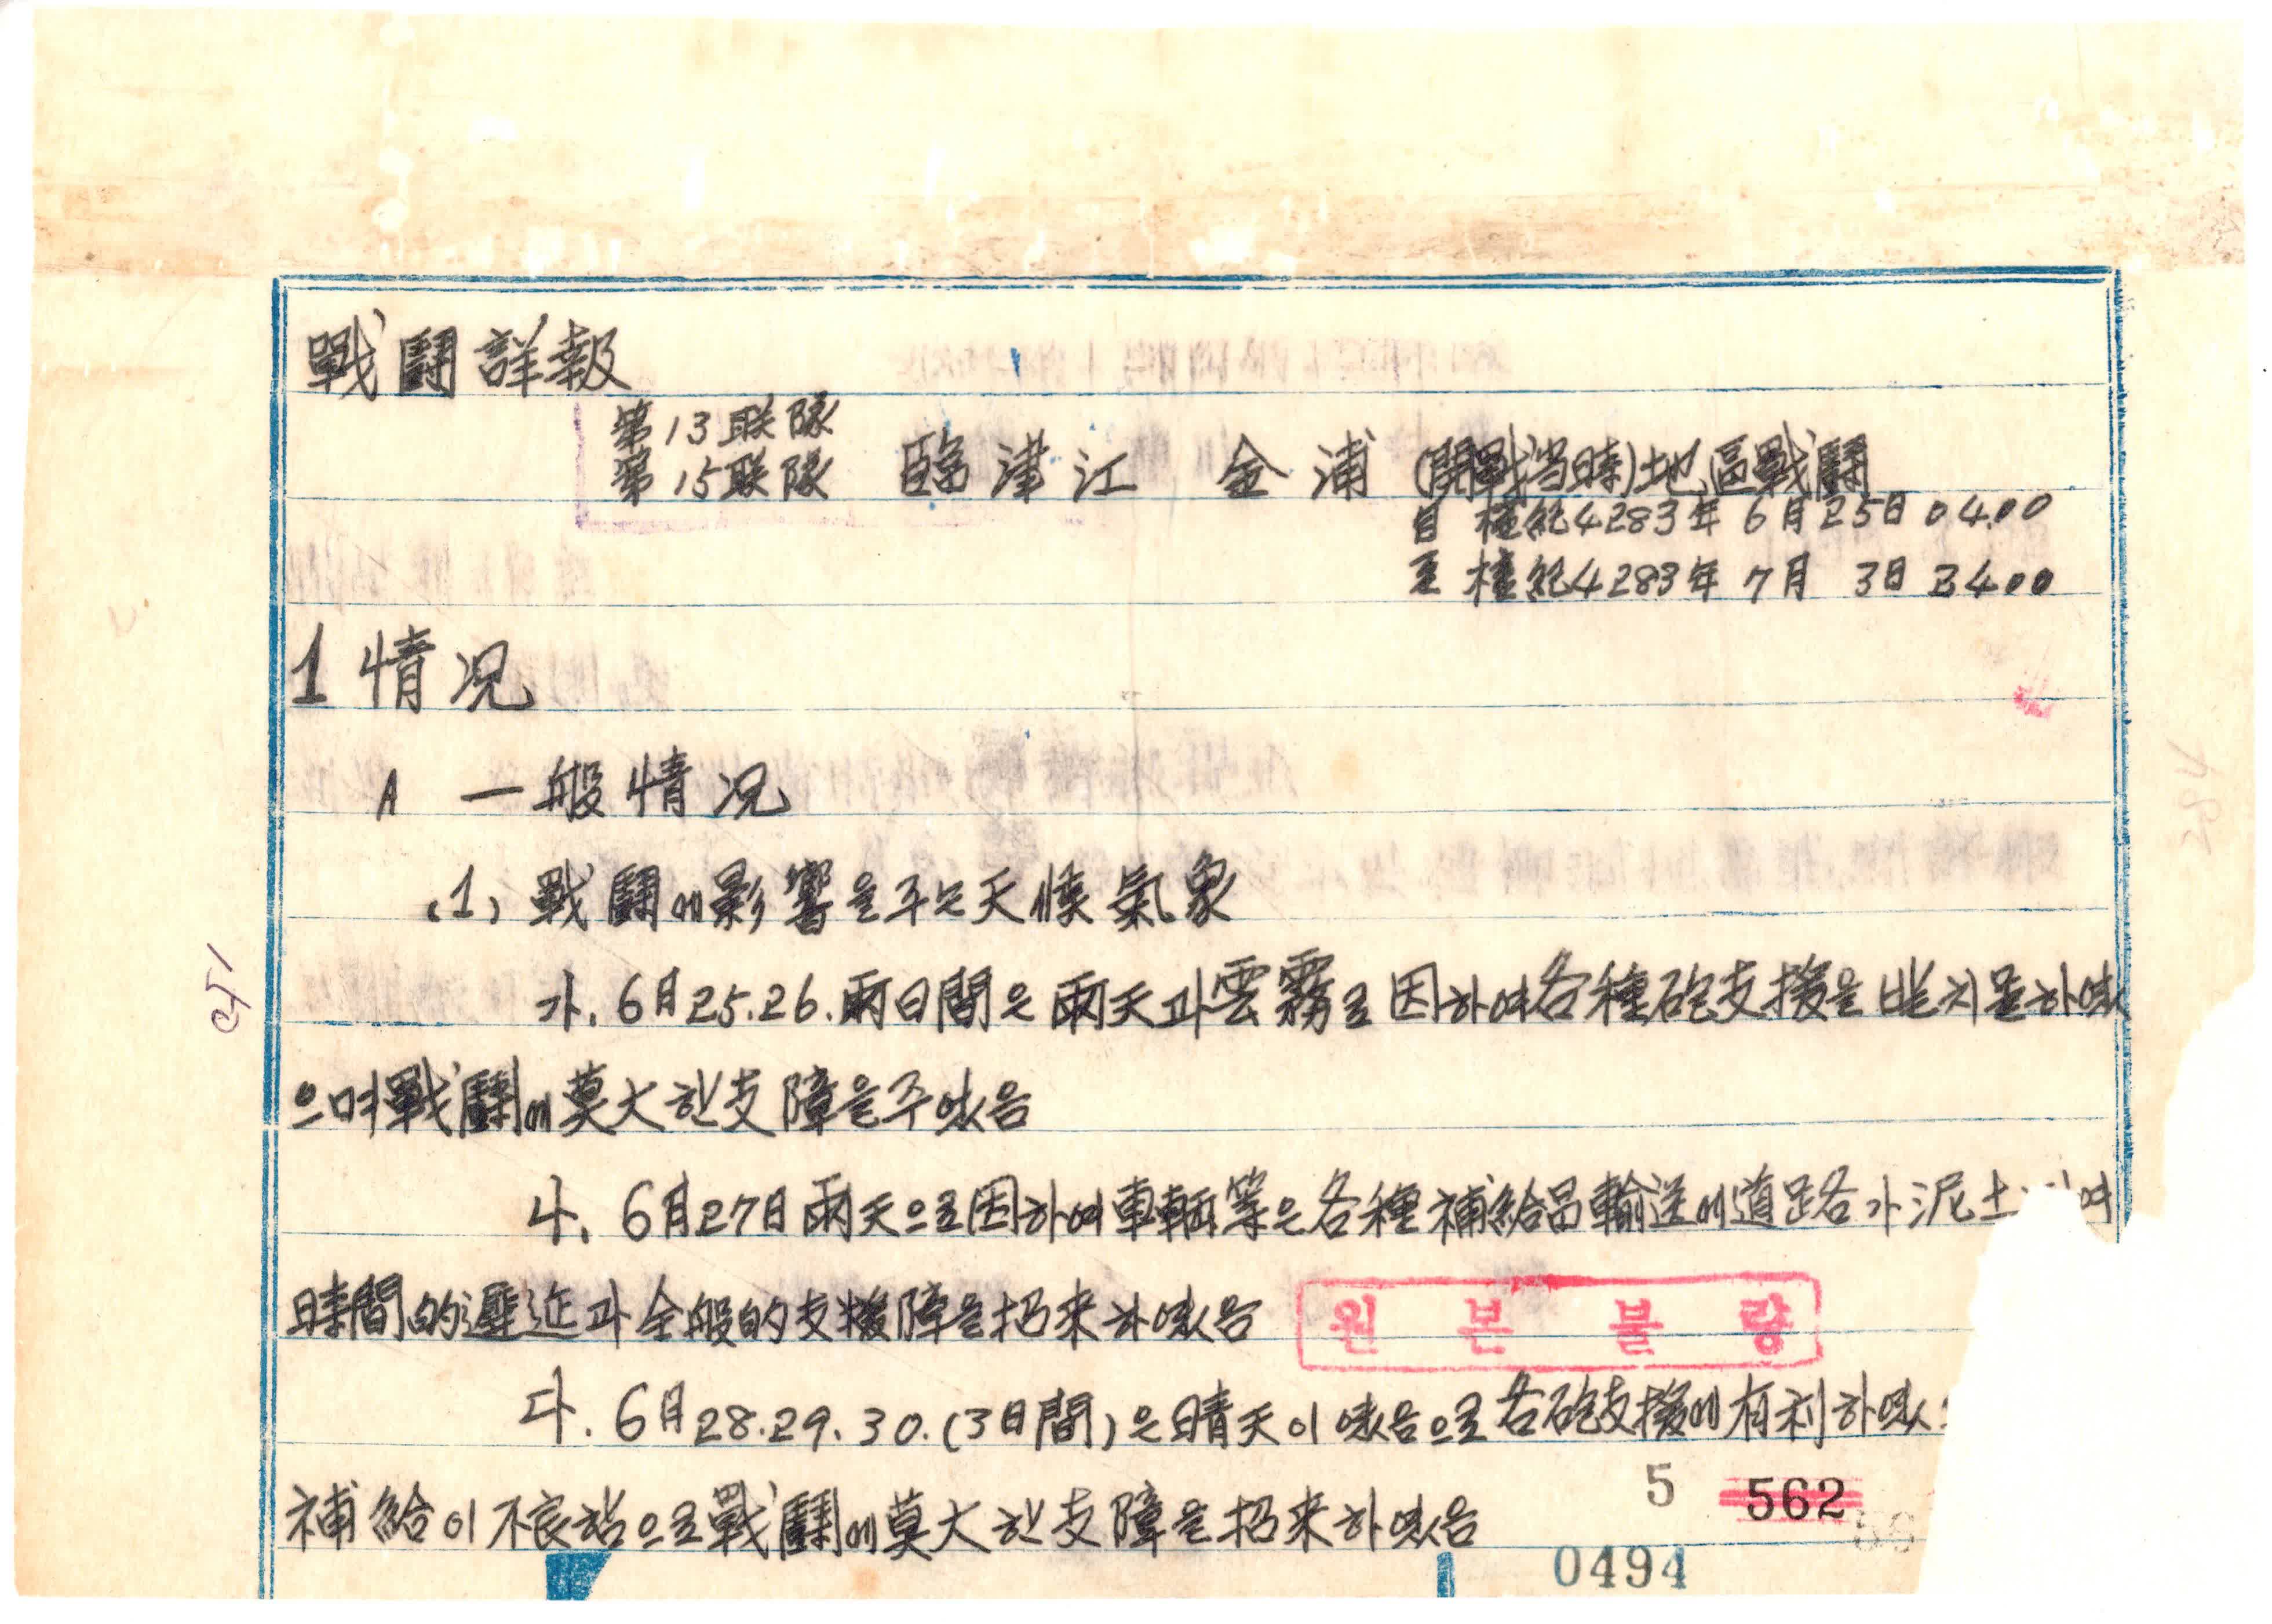 戰鬪詳報
第13联隊
第15联隊 臨津江 金浦 (開戰当時)地區戰鬪
自 檀紀4283年 6月25日 04.00
至 檀紀4283年 7月 3日 24.00
1 情况
A 一般情况
(1) 戰鬪에影響을주는天候氣象
가. 6月25.26.兩日間은雨天과雲霧로因하여各種砲支援을받지못하였
으며戰鬪에莫大한支障을주었음
나. 6月27日雨天으로因하여車輌等은各種補給品輸送에道路가泥土
時間的遲延과全般的支援障을招来하였음
원본불량
다. 6月28.29.30.(3日間)은晴天이였음으로各砲支援에有利하였
補給이不良함으로戰鬪에莫大한支障을招来하였음
5 562
0494